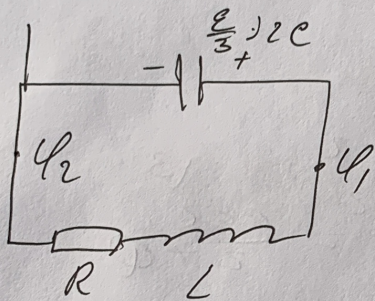 ℰ/3 ; 2C
− +
φ₂ φ₁
R L